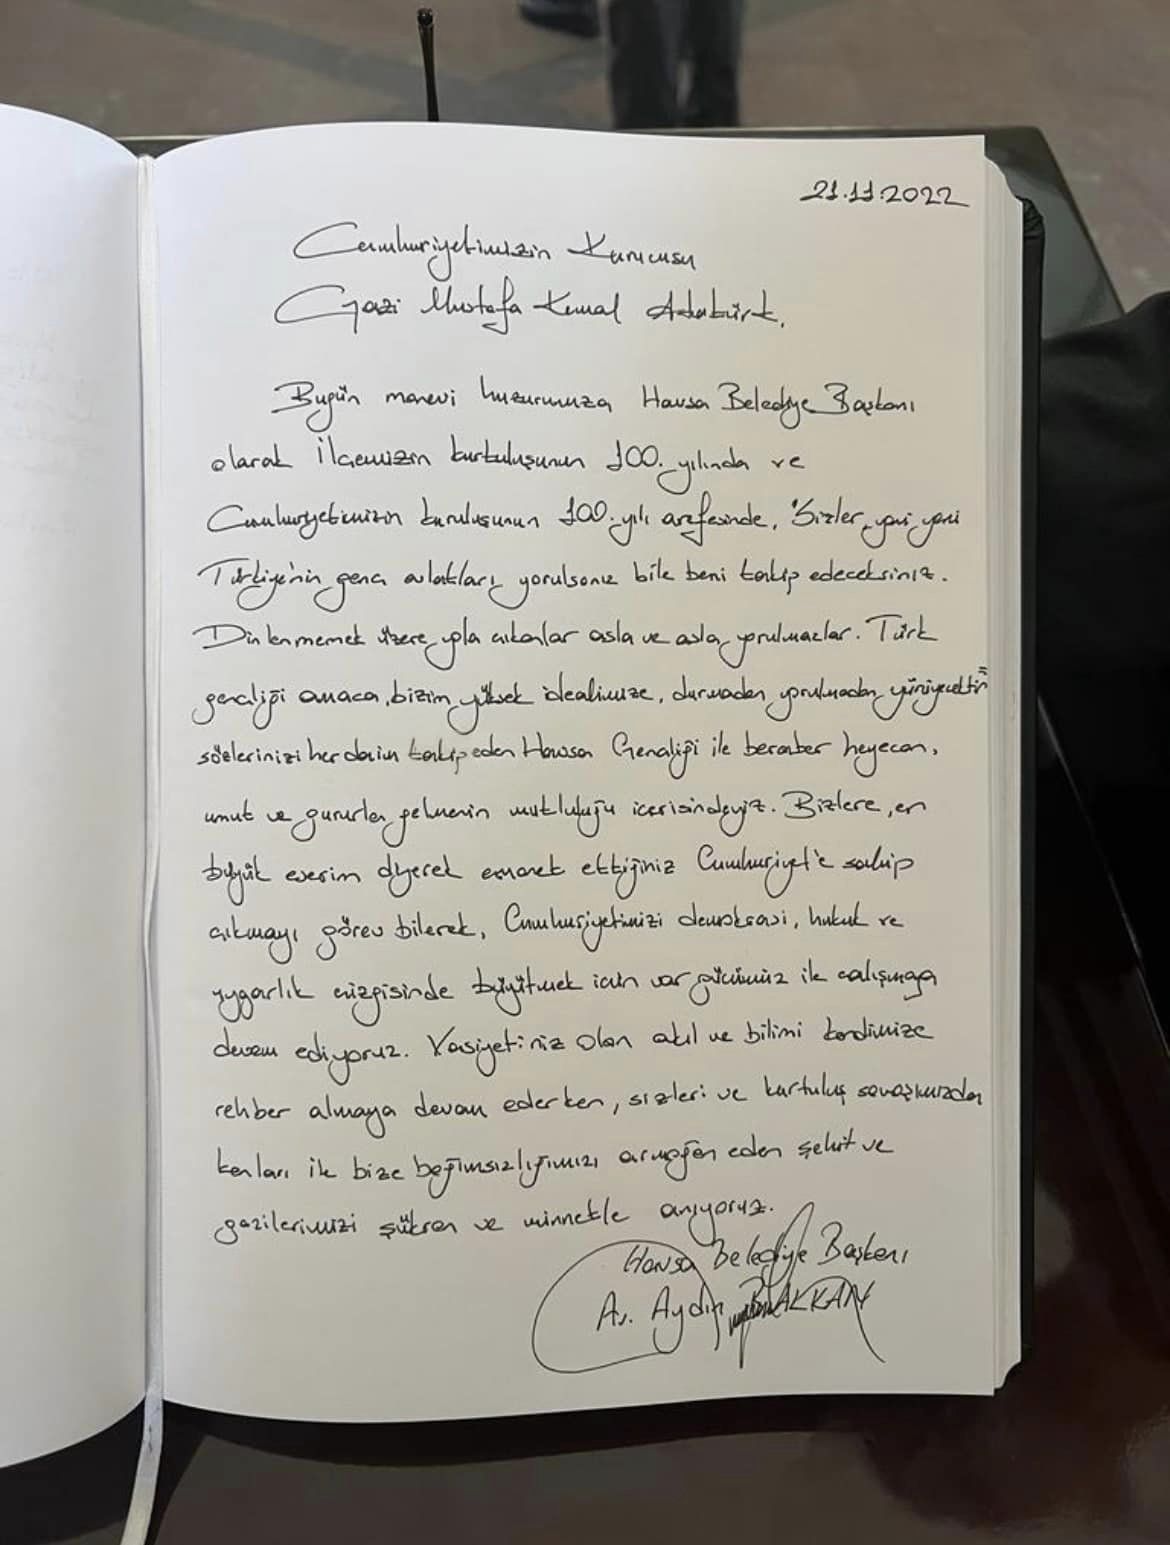 21.11.2022
Cumhuriyetimizin Kurucusu
Gazi Mustafa Kemal Atatürk,
Bugün manevi huzurunuza Havsa Belediye Başkanı
olarak İlçemizin kurtuluşunun 100. yılında ve
Cumhuriyetimizin kuruluşunun 100. yılı arefesinde, "Sizler, yani yeni
Türkiye'nin genç evlatları, yorulsanız bile beni takip edeceksiniz.
Dinlenmemek üzere yola çıkanlar asla ve asla yorulmazlar. Türk
gençliği amaca, bizim yüksek idealimize, durmadan yorulmadan yürüyecektir"
sözlerinizi her daim takip eden Havsa Gençliği ile beraber heyecan,
umut ve gururla gelmenin mutluluğu içerisindeyiz. Bizlere, en
büyük eserim diyerek emanet ettiğiniz Cumhuriyet'e sahip
çıkmayı görev bilerek, Cumhuriyetimizi demokrasi, hukuk ve
uygarlık çizgisinde büyütmek için var gücümüz ile çalışmaya
devam ediyoruz. Vasiyetiniz olan akıl ve bilimi kendimize
rehber almaya devam ederken, sizleri ve kurtuluş savaşımızda
kanları ile bize bağımsızlığımızı armağan eden şehit ve
gazilerimizi şükran ve minnetle anıyoruz.
Havsa Belediye Başkanı
Av. Aydın BALKAN